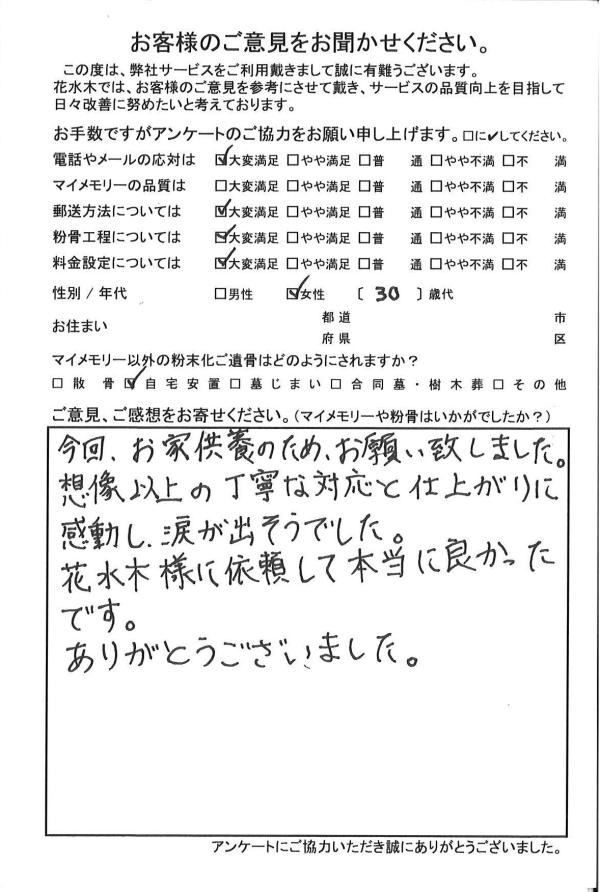 お客様のご意見をお聞かせください。
この度は、弊社サービスをご利用戴きまして誠に有難うございます。
花水木では、お客様のご意見を参考にさせて戴き、サービスの品質向上を目指して
日々改善に努めたいと考えております。
お手数ですがアンケートのご協力をお願い申し上げます。□に✓してください。
電話やメールの応対は ☑大変満足 □やや満足 □普 通 □やや不満 □不 満
マイメモリーの品質は □大変満足 □やや満足 □普 通 □やや不満 □不 満
郵送方法については ☑大変満足 □やや満足 □普 通 □やや不満 □不 満
粉骨工程については ☑大変満足 □やや満足 □普 通 □やや不満 □不 満
料金設定については ☑大変満足 □やや満足 □普 通 □やや不満 □不 満
性別 / 年代 □男性 ☑女性 〔 30 〕歳代
お住まい 都道 市
府県 区
マイメモリー以外の粉末化ご遺骨はどのようにされますか?
□散 骨 ☑自宅安置 □墓じまい □合同墓・樹木葬 □その他
ご意見、ご感想をお寄せください。(マイメモリーや粉骨はいかがでしたか?)
今回、お家供養のため、お願い致しました。
想像以上の丁寧な対応と仕上がりに
感動し、涙が出そうでした。
花水木様に依頼して本当に良かった
です。
ありがとうございました。
アンケートにご協力いただき誠にありがとうございました。